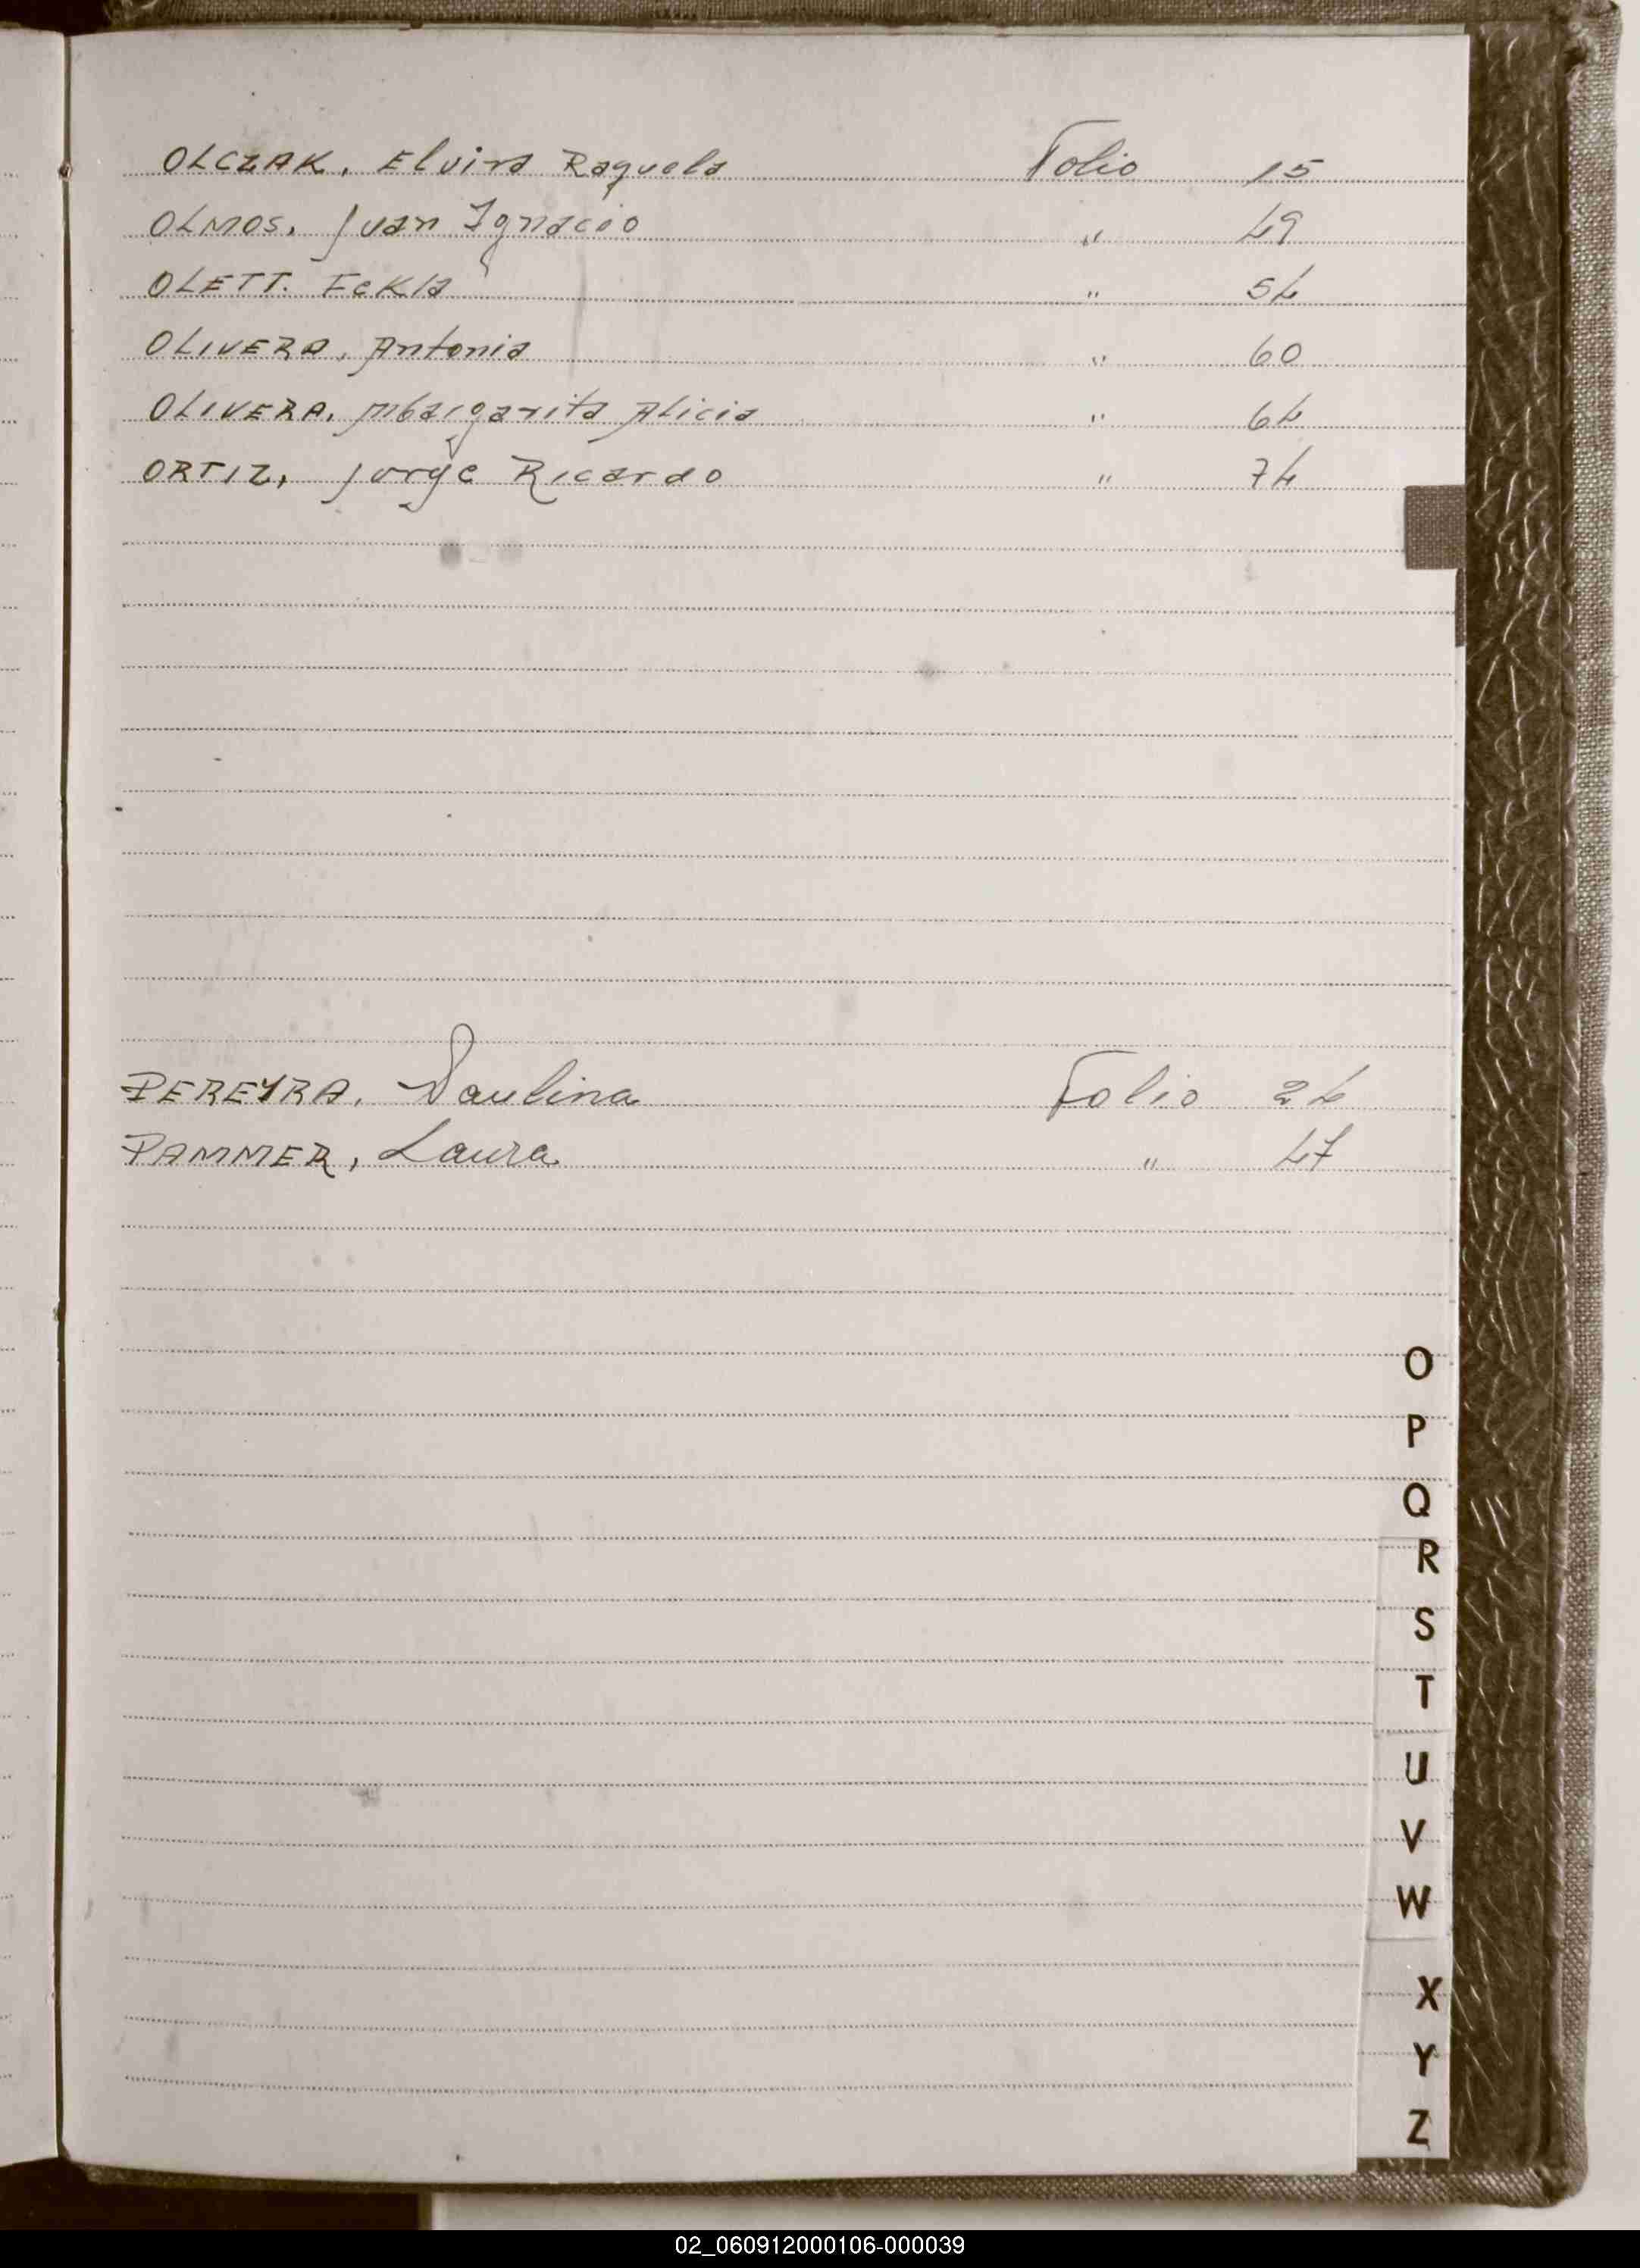 OLCZAK, Elvira Raquela Folio 15
OLMOS, Juan Ignacio " 49
OLETT. Eckla " 54
OLIVERA, Antonia " 60
OLIVERA, Margarita Alicia " 64
ORTIZ, Jorge Ricardo " 74
PEREYRA, Paulina Folio 24
PAMMER, Laura " 47
O
P
Q
R
S
T
U
V
W
X
Y
Z
02_060912000106-000039